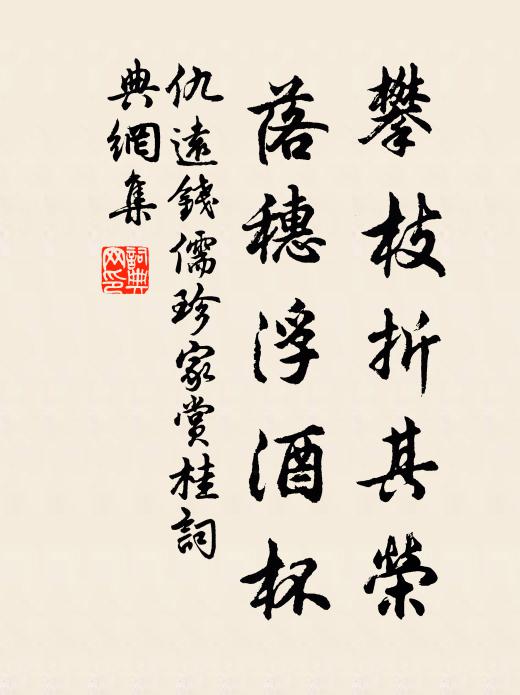 攀枝折其榮
落穗浮酒杯
仇遠錢儒珍家賞桂詞
典網集
詞典
网印